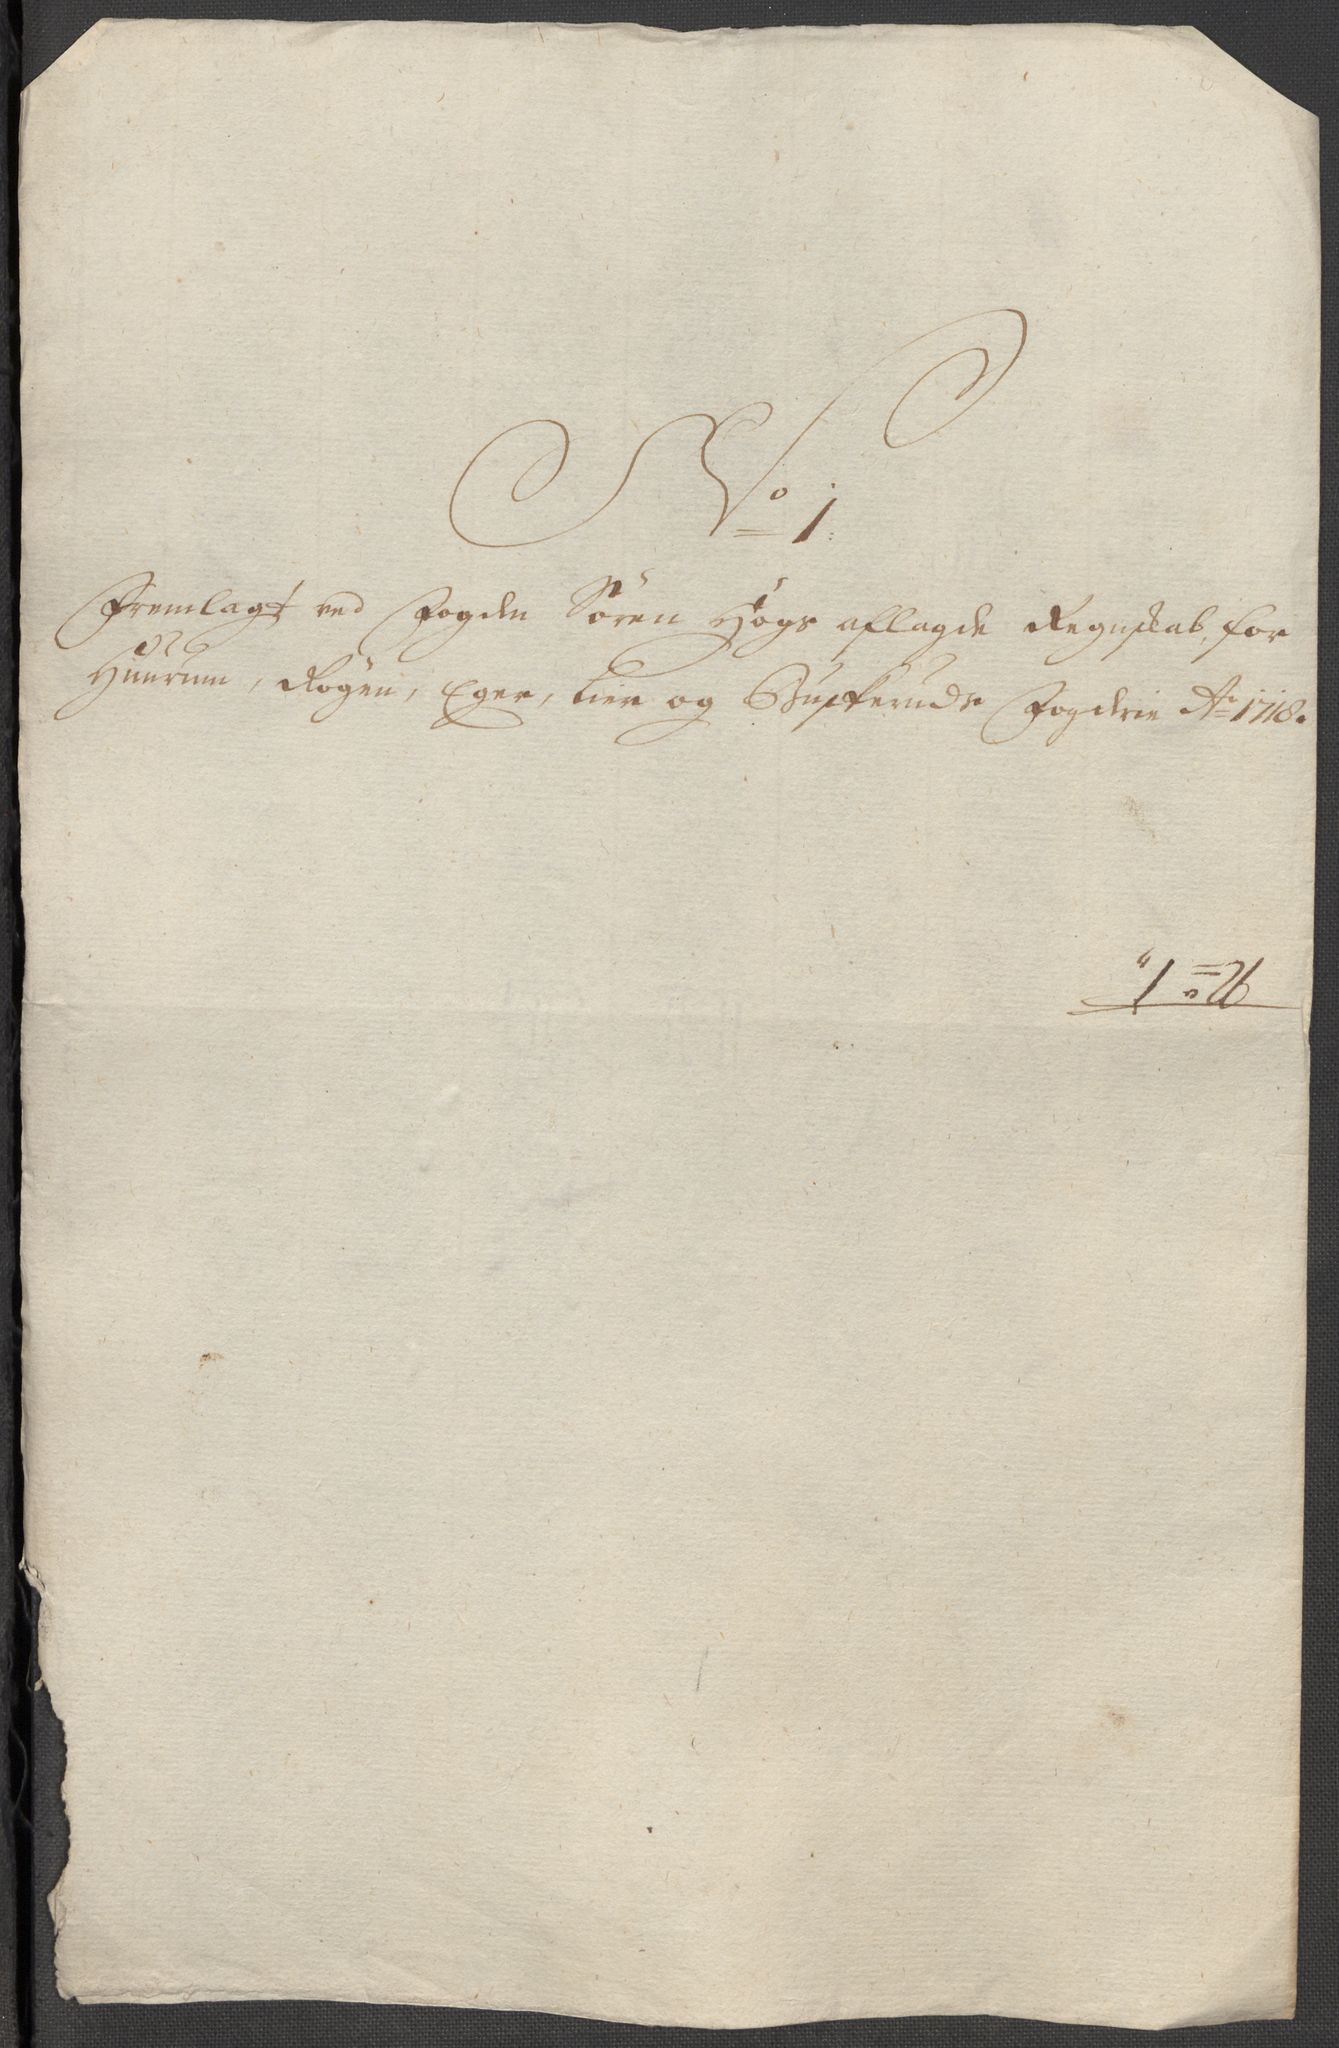 No 1.
Fremlagt ved Fogden Sören Högs aflagde Regnskab, for
Huurum, Rögen, Eger, Lier og Buskeruds Fogderie Ao 1718.
No 1